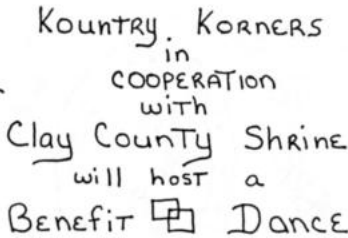 Kountry Korners
in
COOPERATION
with
Clay County Shrine
will host a
Benefit Dance